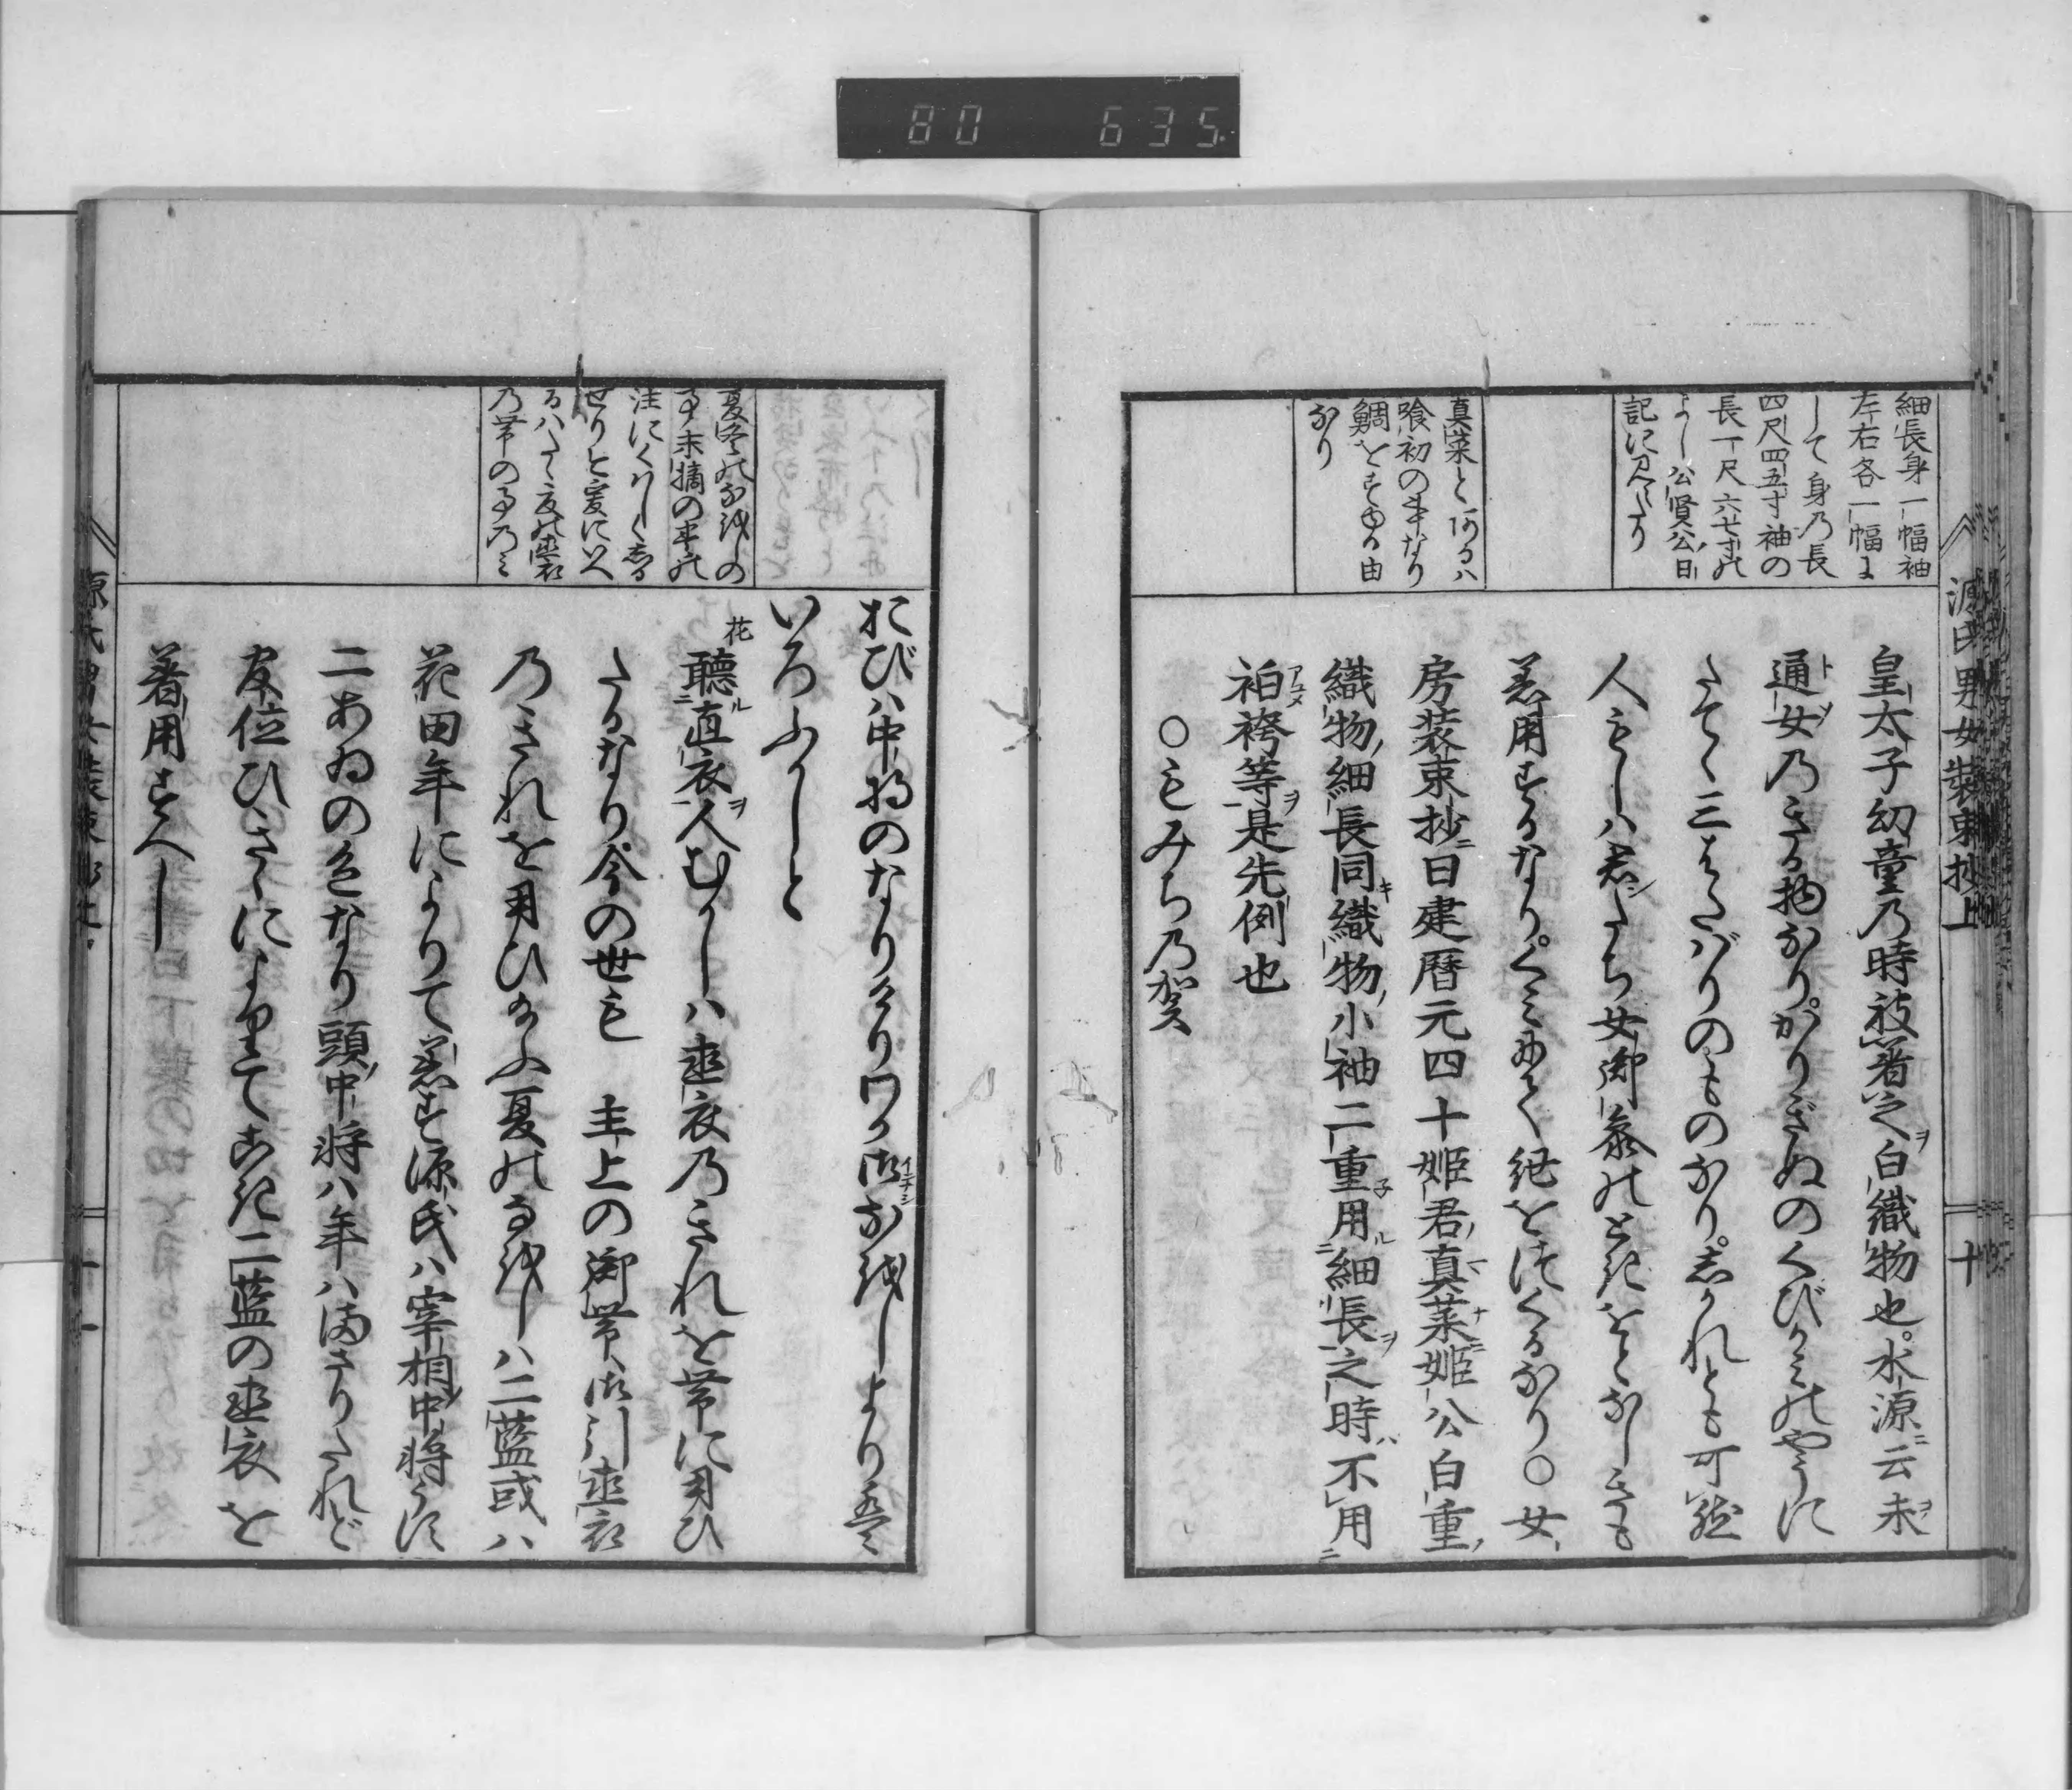 80 635
源氏男女装束抄上
十
細長身一幅袖
左右各一幅に
して身乃長
四尺四五寸袖の
長一尺六七寸のよし公賢公日
記に見えたり
真菜とあるは
喰初の事なり
鯛をすゆる由
なり
皇太子幼童乃時被著之白織物也。水源云未
通女乃きる物なり。かりぎぬのくびかみのやうに
たてゝ三はたばりのものなり。しかれとも可然
人もしハ君たち女御参のときをとなしきも
著用するなり。くみにてく組をつくるなり〇女
房装束抄曰建暦元四十姫君真菜姫公白重
織物細長同織物小袖二重用細長之時不用
袙袴等是先例也
〇もみち乃賀
おびハ中将のなりけりわか御なほしより
いろふかしと
花 聴直衣人むかしハ直衣乃きれを帯に用ひ
たるなり今の世も 主上の御帯ハ御引直衣
乃きれを用ひ給ふ夏のなほしハ二藍或ハ
花田年によりて着す源氏ハ宰相中将うす
二あゐの色なり頭中将ハ年ハまさりたれど
官位ひきゝによりてこき二藍の直衣を
着用すへし
夏冬のなほしの
事末摘の巻の
注にくはしくしる
せりと爰にいへ
るハたゝ夏の直衣
乃帯の事のミ
源氏男女装束抄上
十一